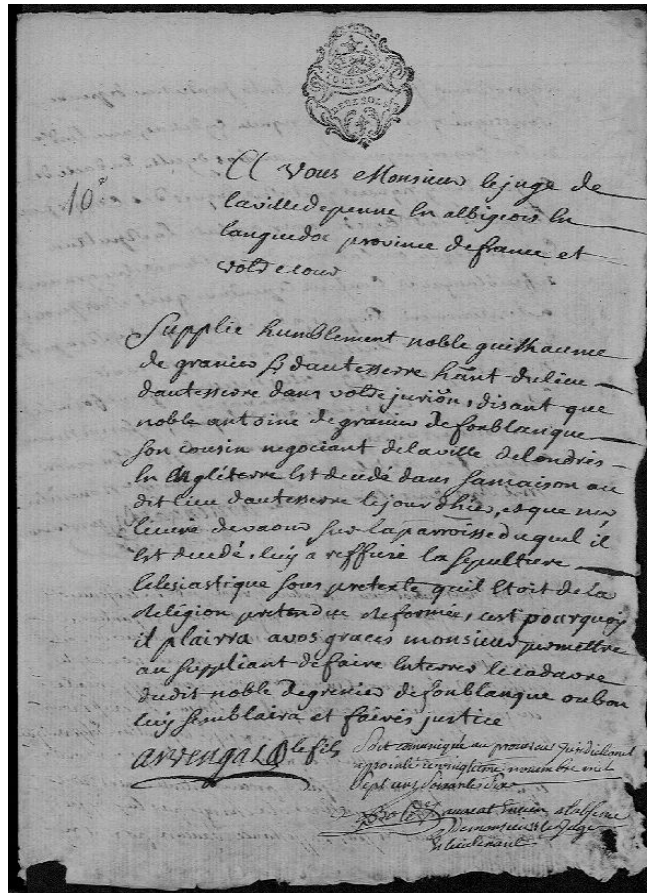 10e
A vous Monsieur le juge de
la ville de penne en albigeois en
languedoc province de france et
votre cour
Supplie humblement noble guilhaume
de granier Sr dautesserre hant du lieu
dautesserre dans votre jurion, disant que
noble antoine de granier de fonblanque
son cousin negociant de la ville de londres
en Angleterre est decedé dans sa maison au
dit lieu dautesserre le jour dhier, et que
le curé de vaour sur la parroisse duquel il
est decedé, luy a reffuzé la sepulture
eclesiastique sous pretexte quil etoit de la
religion pretendue reformée, cest pourquoy
il plairra a vos graces monsieur permettre
au suppliant de faire enterrer le cadavre
dudit noble de grenier de fonblanque ou bon
luy semblaira et faires justice
arvengas le fils
Soit comuniqué au procureur jurisdictionel
vingtieme novembre mil
sept cens soixante dix
avocat encien a labsence
de monsieur le Juge
et lieutenant